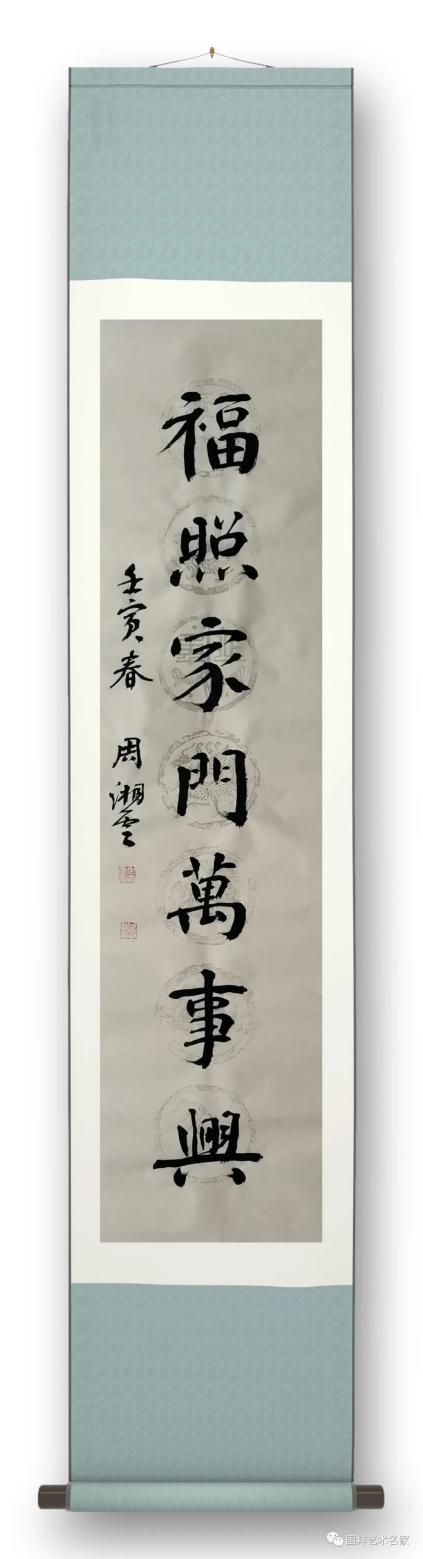 福照家門萬事興
壬寅春 周湘雲
国粹艺术名家